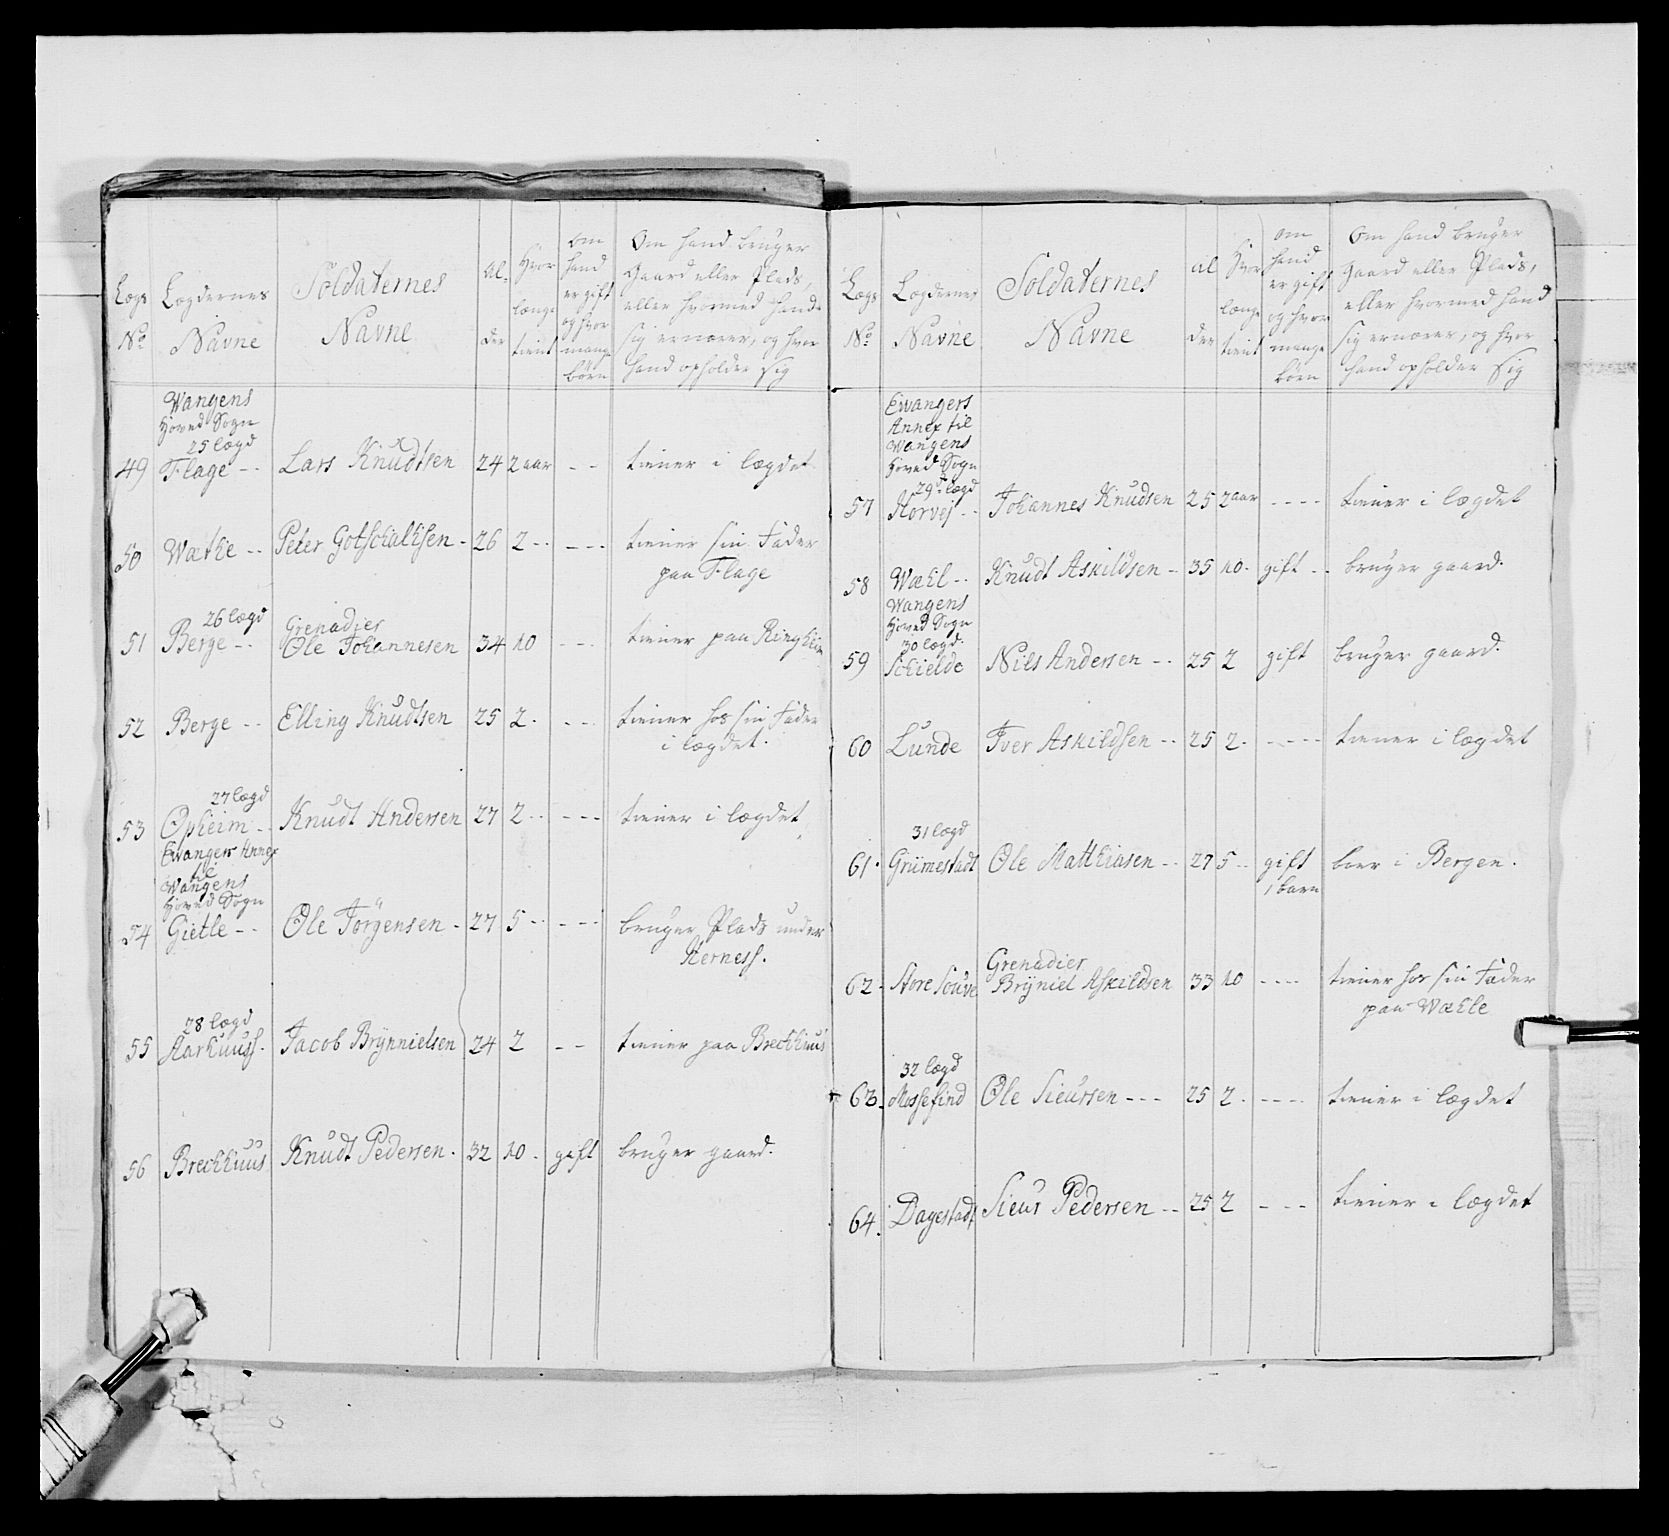 Lægs No
Lægdernes Navne
Soldaternes Navne
Al- der
Hvor længe tient
om hand er gift og hvor mange börn
Om hand bruger
Gaard eller Plads,
eller hvormed hand
sig ernærer, og hvor
hand opholder sig
Wangens
Hoved Sogn
25 lægd
49 Flage -- Lars Knudtsen 24 2 aar -- tiener i lægdet
50 Wæthe -- Peter Gotschalksen - 26 2 -- --- tiener sin Fader
paa Flage
26 lægd
Grenadier
51 Berge -- Ole Johannesen 34 10 --- tiener paa Ringheim
52 Berge -- Elling Knudtsen 25 2 - --- tiener hos sin Fader
i lægdet.
27 lægd
53 Opheim -- Knudt Andersen 27 2 -- --- tiener i lægdet
Ewangers Annex
til
Wangens
Hoved Sogn
54 Gietle -- Ole Törgensen - 27 5 -- --- bruger Plads under
Herness.
28 lægd
55 Aarhuuss. Jacob Brÿnnielsen 24 2 -- tiener paa Brechhuus
56 Brechhuus Knudt Pedersen. 32 10 - gift bruger gaard.
Lægs No
Lægdernes Navne
Soldaternes Navne
al der
Hvor længe tient
om hand er gift og hvor mange börn
Om hand bruger
gaard eller Plads,
eller hvormed hand
sig ernærer, og hvor
hand opholder sig
Ewangers
Annex til
Wangens
Hoved Sogn
29de lægd
57 Horvej -- Johannes Knudsen 25 2 aar ---- tiener i lægdet
58 Wæhl -- Knudt Askildsen - 35 10 - gift -- bruger gaard.
Wangens
Hoved Sogn
30 lægd.
59 Schielde Niels Andersen -- 25 2 gift bruger gaard.
60 Lunde Iver Askildsen -- 25 2 - ----- tiener i lægdet
31 lægd
61. Griimestadt Ole Matthiasen -- 27 5 -- gift boer i Bergen.
1 barn
Grenadier
62. Store Souve Brÿniel Askildsen 33 10 ---- tiener hos sin Fader
paa Wæhle
32 lægd
63. Mossefind Ole Sieursen --- 25 2 - ---- tiener i lægdet
64. Dagestadt Sieur Pedersen -- 25 2 --- tiener i lægdet